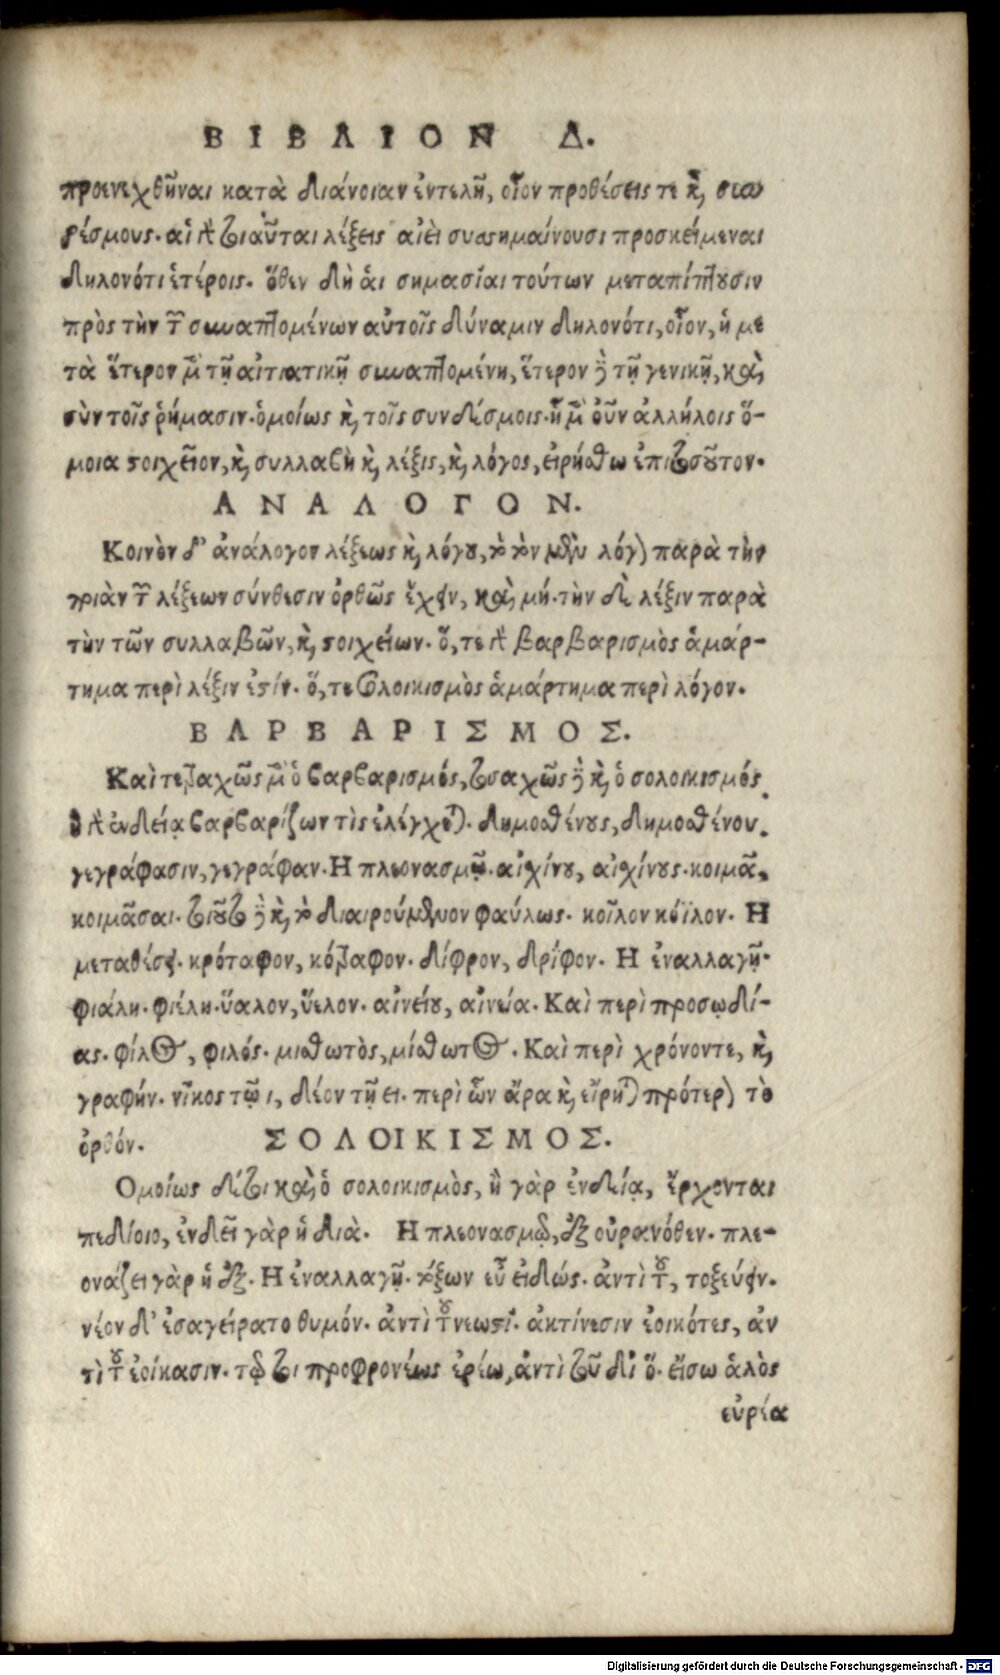 ΒΙΒΛΙΟΝ Δ.
προενεχθῆναι κατὰ διάνοιαν ἐντελῆ, οἷον προθέσεις τε καὶ συν
δέσμους. αἱ γὰρ τοιαῦται λέξεις αἰεὶ συσσημαίνουσι προσκείμεναι
δηλονότι ἑτέροις. ὅθεν δὴ ἁι σημασίαι τούτων μεταπίπτουσιν
πρὸς τὴν τῶν συναπτομένων αὐτοῖς δύναμιν δηλονότι, οἷον, ἡ με
τὰ ἕτερον μὲν τῇ αἰτιατικῇ συναπτομένη, ἕτερον δὲ τῇ γενικῇ, καὶ
σὺν τοῖς ῥήμασιν. ὁμοίως καὶ τοῖς συνδέσμοις. ἡ μὲν οὖν ἀλλήλοις ὅ-
μοια στοιχεῖον, καὶ συλλαβὴ καὶ λέξις, καὶ λόγος, εἰρήσθω ἐπιτοσοῦτον.
ΑΝΑΛΟΓΟΝ.
Κοινὸν δ' ἀνάλογον λέξεως καὶ λόγου, τὸ τὸν μὲν λόγον παρὰ τὴν
ποιὰν τῶν λέξεων σύνθεσιν ὀρθῶς ἔχειν, καὶ μή. τὴν δὲ λέξιν παρὰ
τὴν τῶν συλλαβῶν, καὶ στοιχείων. ὅ, τε γὰρ βαρβαρισμὸς ἁμάρ-
τημα περὶ λέξιν ἐστίν. ὅ, τε σολοικισμὸς ἁμάρτημα περὶ λόγον.
ΒΑΡΒΑΡΙΣΜΟΣ.
Καὶ τετραχῶς μὲν ὁ βαρβαρισμός, τοσαχῶς δὲ καὶ ὁ σολοικισμός.
ἢ γὰρ ἐνδείᾳ βαρβαρίζων τὶς ἐλέγχεται. Δημοσθένους, δημοσθένου.
γεγράφασιν, γεγράφαν. Η πλεονασμῷ. αἰσχίνου, αἰσχίνους. κοιμᾶ,
κοιμᾶσαι. τοιοῦτο δὲ καὶ τὸ διαιρούμενον φαύλως. κοῖλον κόϊλον. Η
μεταθέσει. κρόταφον, κότραφον. δίφρον, δρίφον. Η ἐναλλαγῇ.
φιάλη. φιέλη. ὕαλον, ὕελον. αἰνείου, αἰνεία. Καὶ περὶ προσῳδί-
ας. φίλος, φιλός. μισθωτὸς, μίσθωτος. Καὶ περὶ χρόνοντε, καὶ
γραφήν. νῖκος τῷ ι, δέον τῇ ει. περὶ ὧν ἄρα καὶ εἴρηται πρότερον τὸ
ὀρθόν. ΣΟΛΟΙΚΙΣΜΟΣ.
Ομοίως δέτοι καὶ ὁ σολοικισμὸς, ἢ γὰρ ἐνδείᾳ, ἔρχονται
πεδίοιο, ἐνδεῖ γὰρ ἡ διὰ. Η πλεονασμῷ, ἐξ οὐρανόθεν. πλε-
ονάζει γὰρ ἡ ἐξ. Η ἐναλλαγῇ. τόξων εὖ εἰδώς. ἀντὶ τοῦ, τοξεύειν.
νέον δ' ἐσαγείρατο θυμόν. ἀντὶ τοῦ νεωστί. ἀκτίνεσιν ἐοικότες, ἀν
τὶ τοῦ ἐοίκασιν. τῷ τοι προφρονέως ἐρέω, ἀντὶ τοῦ δι ὅ. εἴσω ἁλὸς
εὐρέα